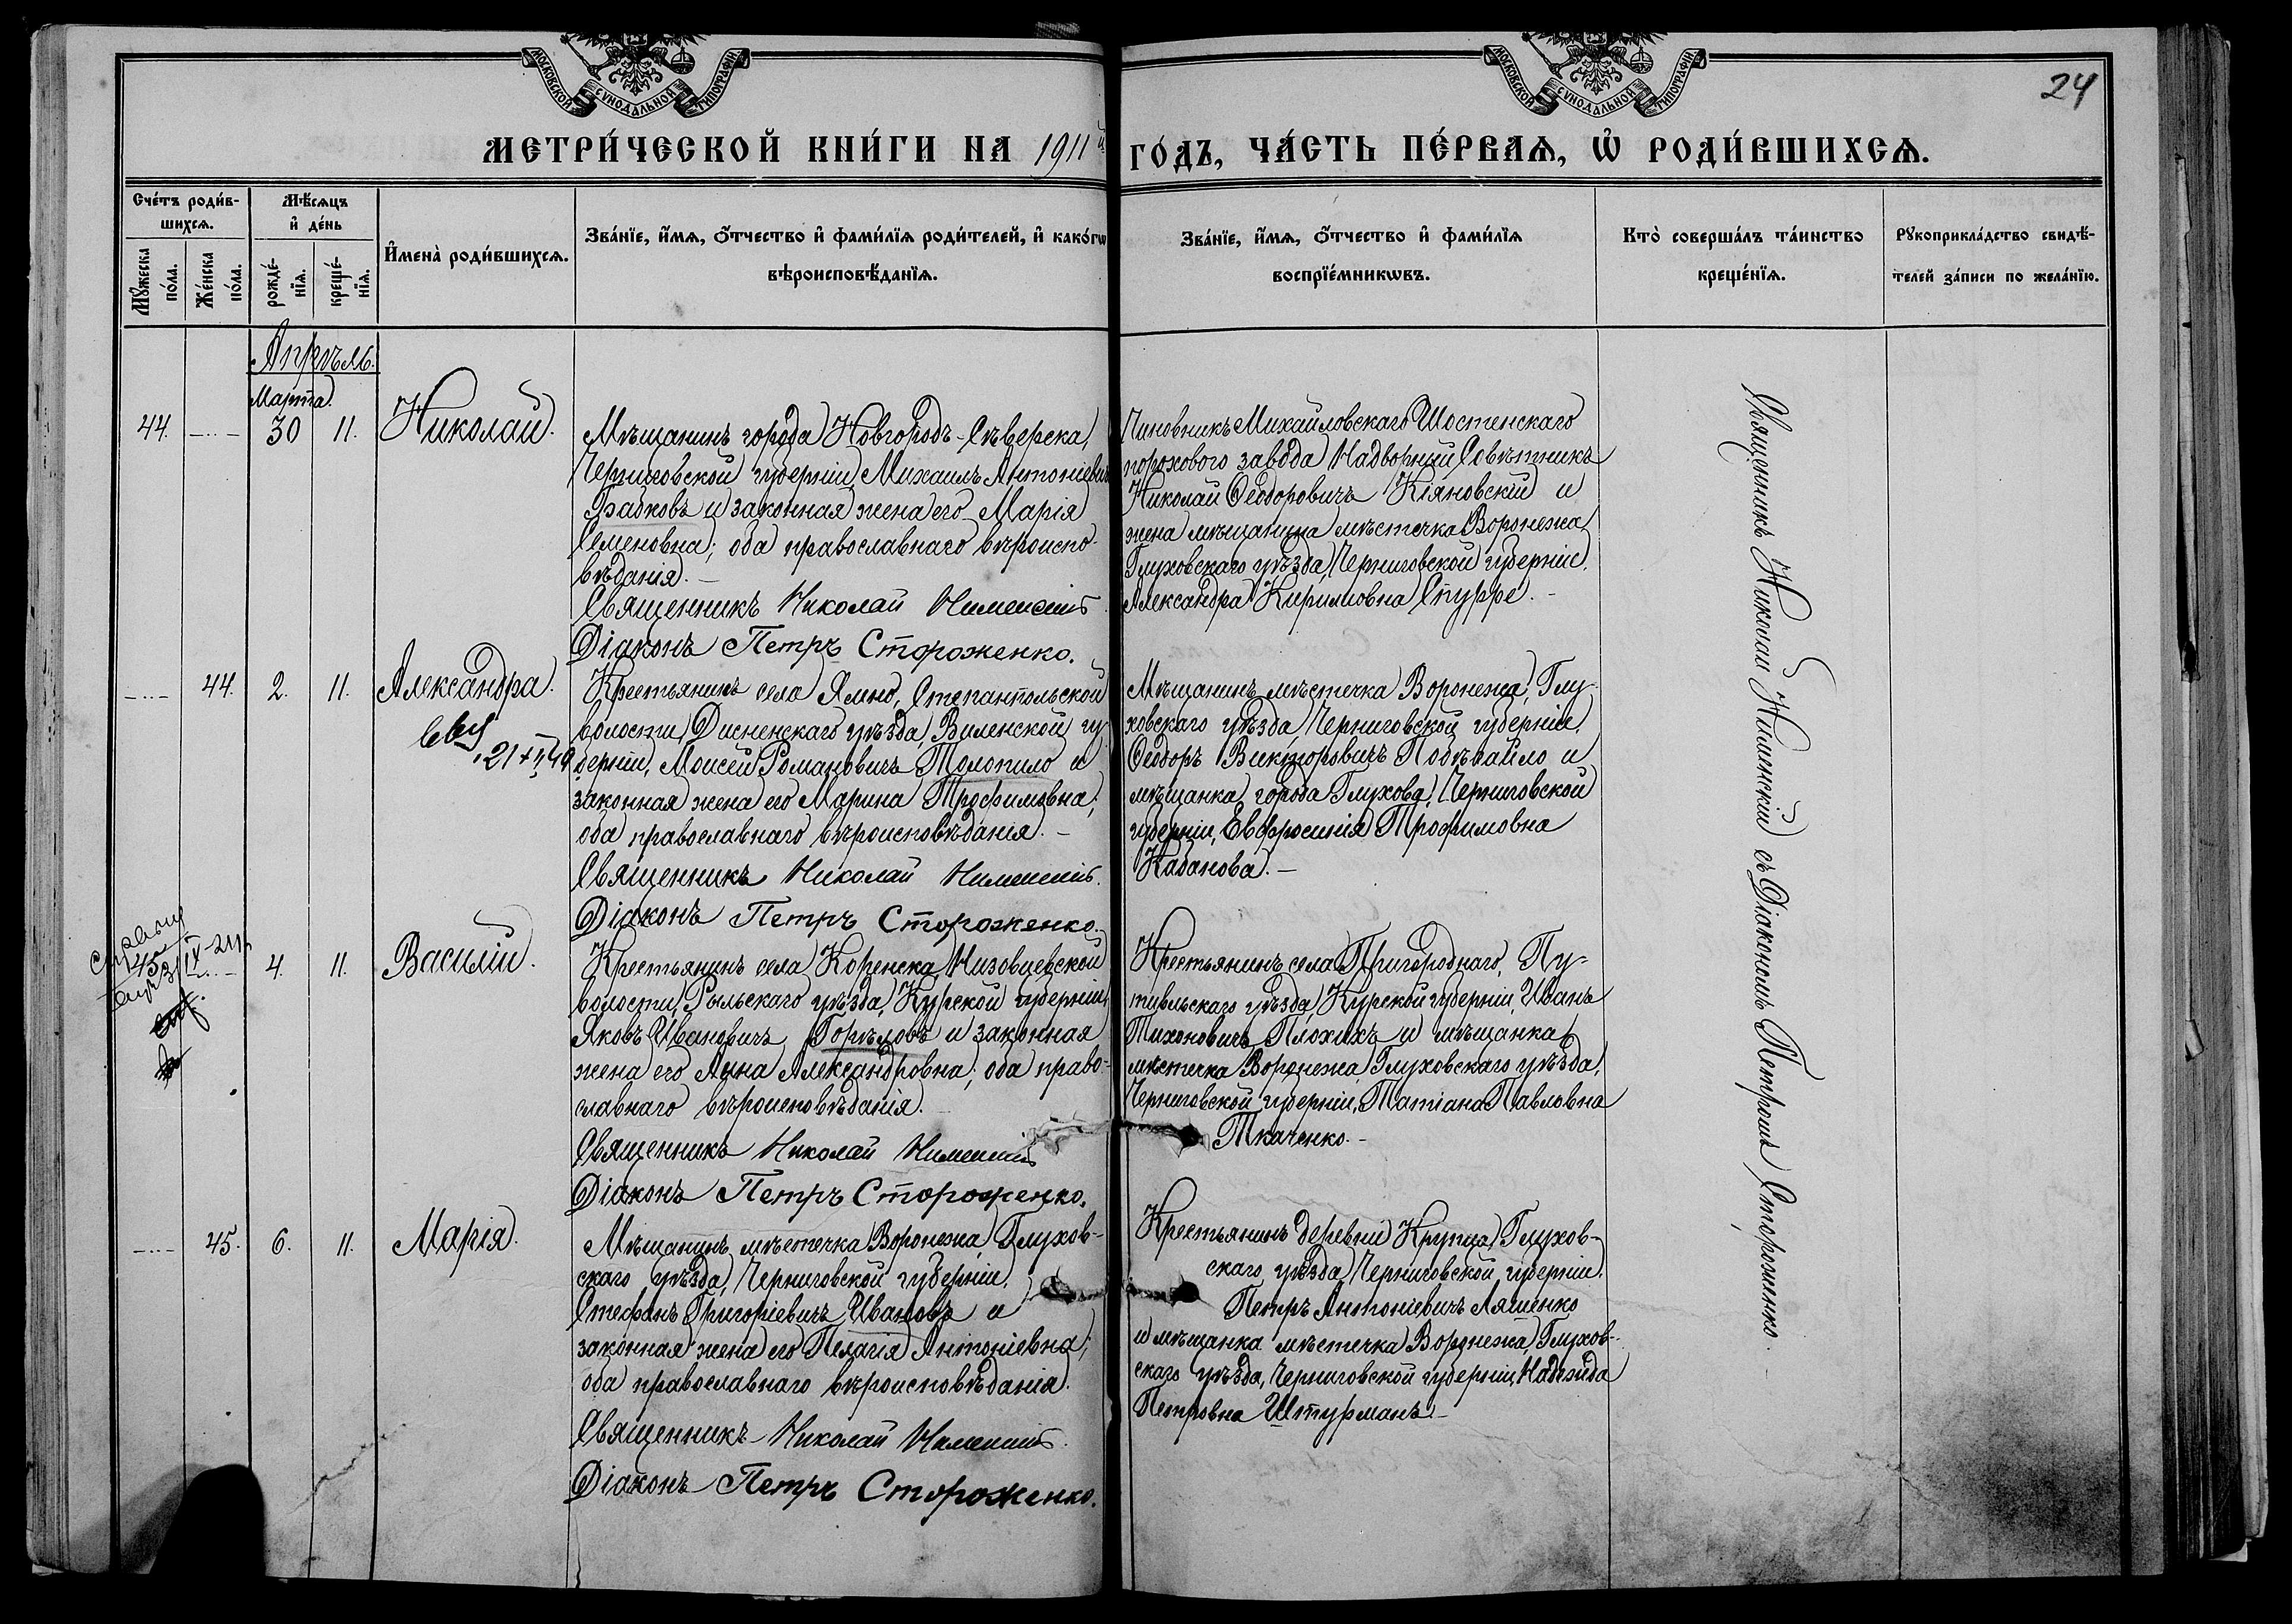 МОСКОВСКОЙ СѴНОДАЛЬНОЙ ТИПОГРАФІИ.
МОСКОВСКОЙ СѴНОДАЛЬНОЙ ТИПОГРАФІИ.
24
МЕТРИ́ЧЕСКОЙ КНИ́ГИ НА 1911й ГО́ДЪ, ЧА́СТЬ ПЕ́РВАѦ, Ѡ҆ РОДИ́ВШИХСѦ.
Сче́тъ роди́в-
шихсѧ.
Мꙋ́жеска по́ла.
Же́нска по́ла.
Мѣ́сѧцъ
и҆ де́нь
рожде́-
нїѧ.
креще́-
нїѧ.
И҆мена̀ роди́вшихсѧ.
Зва́нїе, и҆́мѧ, ѻ҆́тчество и҆ фами́лїѧ роди́телей, и҆ како́гѡ
вѣроисповѣ́данїѧ.
Зва́нїе, и҆́мѧ, ѻ҆́тчество и҆ фами́лїѧ
воспрїе́мникѡвъ.
Кто̀ соверша́лъ та́инство
креще́нїѧ.
Рꙋкоприкла́дство свидѣ́-
телей за́писи по жела́нїю.
Апрѣль.
Марта.
44. 30 11. Николай.
Мѣщанинъ города Новгородъ-Сѣверска,
Черниговской губерніи, Михаилъ Антоніевичъ
Бабковъ и законная жена его Марія
Семеновна; оба православнаго вѣроиспо-
вѣданія. –
Священникъ Николай Нименскій
Діаконъ Петръ Стороженко.
Чиновникъ Михайловскаго Шостенскаго
порохового завода Надворный Совѣтникъ
Николай Ѳеодоровичъ Кіяновскій и
жена мѣщанина мѣстечка Воронежа,
Глуховскаго уѣзда, Черниговской губерніи,
Александра Кирилловна Спурре. –
44. 2. 11. Александра.
Крестьянинъ села Ямно, Степанпольской
волости, Дисненскаго уѣзда, Виленской гу-
берніи, Моисей Романовичъ Толопило и
законная жена его Марина Трофимовна;
оба православнаго вѣроисповѣданія. –
Священникъ Николай Нименскій.
Діаконъ Петръ Стороженко.
Мѣщанинъ мѣстечка Воронежа, Глу-
ховскаго уѣзда, Черниговской губерніи,
Ѳеодоръ Викторовичъ Побѣгайло и
мѣщанка города Глухова, Черниговской
губерніи, Евфросинія Трофимовна
Кабанова. –
45 4. 11. Василій.
Крестьянинъ села Коренска, Низовцевской
волости, Рыльскаго уѣзда, Курской губерніи,
Яковъ Ивановичъ Горѣловъ и законная
жена его Анна Александровна; оба право-
славнаго вѣроисповѣданія.
Священникъ Николай Нименскій
Діаконъ Петръ Стороженко.
Крестьянинъ села Пригороднаго, Пу-
тивльскаго уѣзда, Курской губерніи, Иванъ
Тихоновичъ Плохихъ и мѣщанка
мѣстечка Воронежа, Глуховскаго уѣзда,
Черниговской губерніи, Татіана Павловна
Ткаченко. –
45. 6. 11. Марія.
Мѣщанинъ мѣстечка Воронежа, Глухов-
скаго уѣзда, Черниговской губерніи,
Стефанъ Григоріевичъ Ивановъ и
законная жена его Пелагія Антоніевна;
оба православнаго вѣроисповѣданія.
Священникъ Николай Нименскій.
Діаконъ Петръ Стороженко.
Крестьянинъ деревни Крупца, Глухов-
скаго уѣзда, Черниговской губерніи,
Петръ Антоніевичъ Ляшенко
и мѣщанка мѣстечка Воронежа, Глухов-
скаго уѣзда, Черниговской губерніи, Надежда
Петровна Штурманъ. –
Священникъ Николай Нименскій съ Діакономъ Петромъ Стороженко.